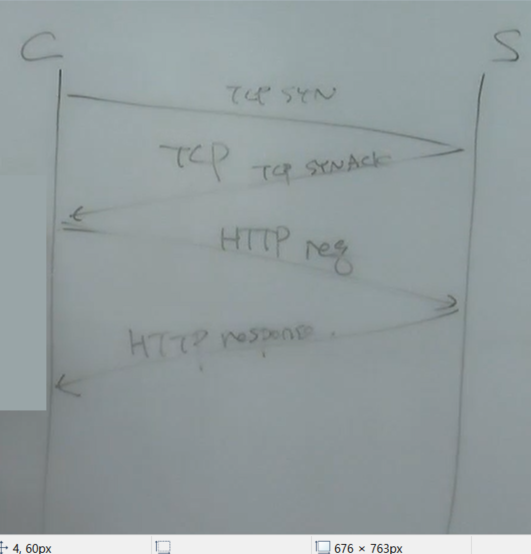 C
S
TCP SYN
TCP
TCP SYNACK
HTTP req
HTTP response
4, 60px
676 × 763px